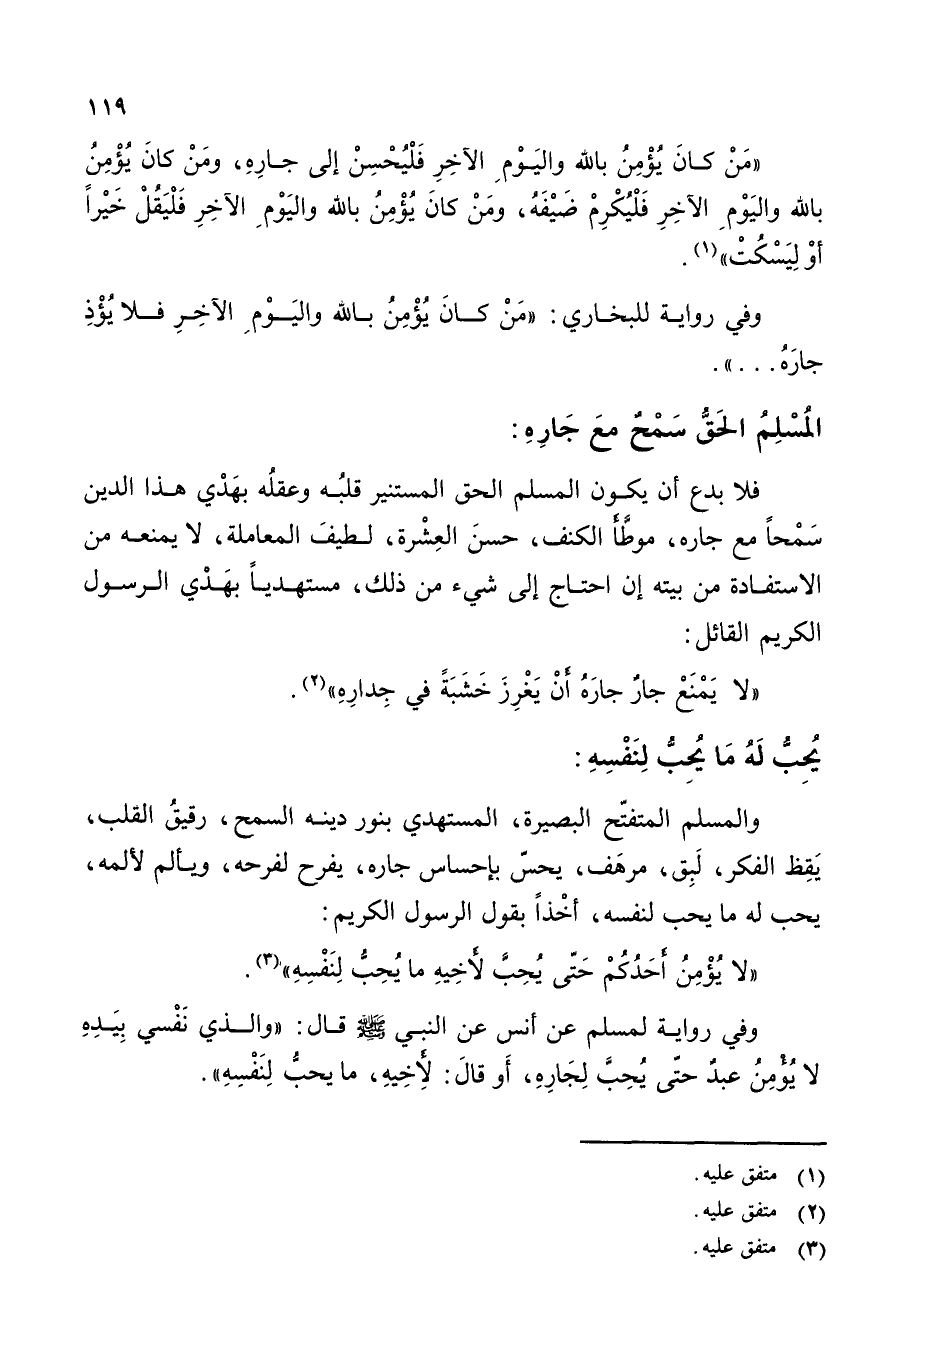 ١١٩
«مَنْ كـانَ يُؤْمِنُ بالله واليَـوْمِ الآخِرِ فَلْيُحْسِنْ إلى جـارِهِ، ومَنْ كانَ يُؤْمِنُ
بالله واليَوْمِ الآخِرِ فَلْيُكْرِمْ ضَيْفَهُ، ومَنْ كانَ يُؤْمِنُ بالله واليَوْمِ الآخِرِ فَلْيَقُلْ خَيْراً
أوْ لِيَسْكُتْ»(١).
وفي روايـة للبخـاري: «مَنْ كـانَ يُؤْمِنُ بـالله واليَـوْمِ الآخِـرِ فـلا يُؤْذِ
جارَهُ...».
المُسْلِمُ الحَقُّ سَمْحٌ معَ جَارِهِ:
فلا بدع أن يكـون المسلم الحق المستنير قلبُـه وعقلُه بهَدْي هـذا الدين
سَمْحاً مع جاره، موطَّأَ الكنف، حسنَ العِشْرة، لـطيفَ المعاملة، لا يمنعـه من
الاستفـادة من بيته إن احتـاج إلى شيء من ذلك، مستهـديـاً بهَـدْي الـرسـول
الكريم القائل:
«لا يَمْنَعْ جارٌ جارَهُ أَنْ يَغْرِزَ خَشَبَةً في جِدارِهِ»(٢).
يُحِبُّ لَهُ مَا يُحِبُّ لِنَفْسِهِ:
والمسلم المتفتّح البصيرة، المستهدي بنور دينـه السمح، رقيقُ القلب،
يَقِظ الفكر، لَبِق، مرهَف، يحسّ بإحساس جاره، يفرح لفرحه، ويـألم لألمه،
يحب له ما يحب لنفسه، أخْذاً بقول الرسول الكريم:
«لا يُؤْمِنُ أَحَدُكُمْ حَتّى يُحِبَّ لأَخيهِ ما يُحِبُّ لِنَفْسِهِ»(٣).
وفي روايـة لمسلم عن أنس عن النبـي ﷺ قـال: «والـذي نَفْسي بِيَـدِهِ
لا يُؤْمِنُ عبدٌ حتّى يُحِبَّ لِجَارِهِ، أو قالَ: لِأَخِيهِ، ما يحبُّ لِنَفْسِهِ».
(١) متفق عليه.
(٢) متفق عليه.
(٣) متفق عليه.